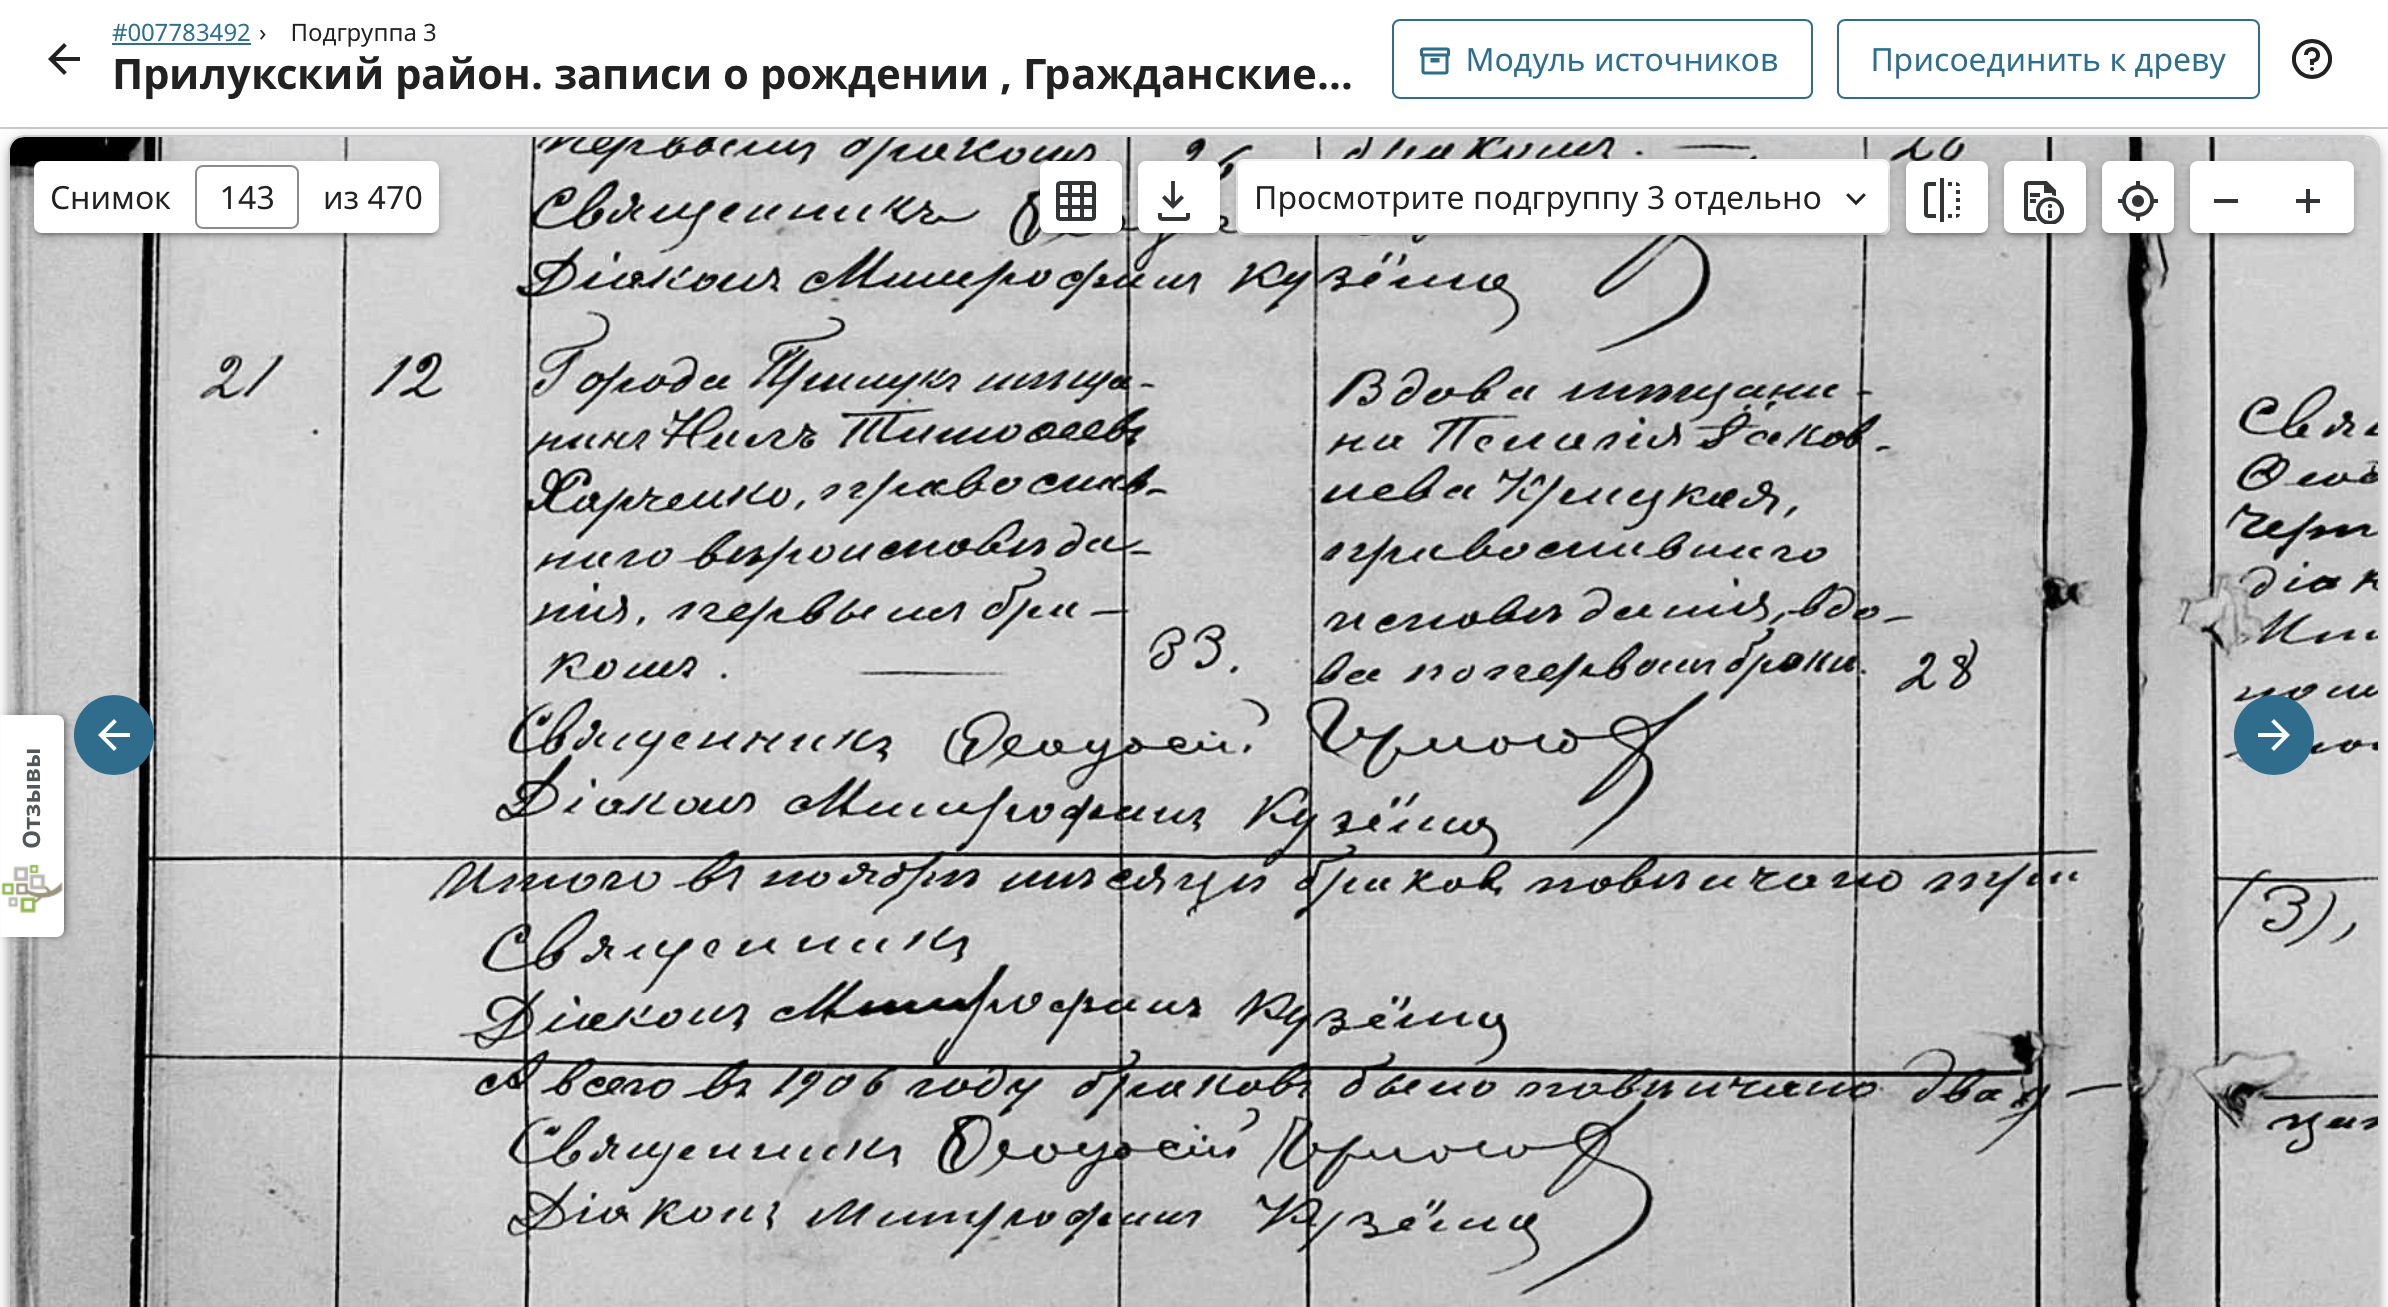 #007783492 › Подгруппа 3
Прилукский район. записи о рождении , Гражданские...
Модуль источников
Присоединить к древу
Снимок 143 из 470
Просмотрите подгруппу 3 отдельно
Отзывы
первымъ бракомъ. 26 бракомъ. — 20
Священникъ
Діаконъ Митрофанъ Кузёма
21 12
Города Прилукъ мѣща-
нинъ Нилъ Тимоѳеевъ
Харченко, православ-
наго вѣроисповѣда-
нія, первымъ бра-
комъ. — 33.
Вдова мѣщани-
на Пелагія Яков-
лева Крицкая,
православнаго
исповѣданія, вдо-
ва по первомъ бракѣ. 28
Священникъ Ѳеодосій
Діаконъ Митрофанъ Кузёма
Итого въ ноябрѣ мѣсяцѣ браковъ повѣнчано три
Священникъ
Діаконъ Митрофанъ Кузёма
А всего въ 1906 году браковъ было повѣнчано двад-
Священникъ Ѳеодосій
Діаконъ Митрофанъ Кузёма
Свя
Ѳеод
Черн
діак
(3),